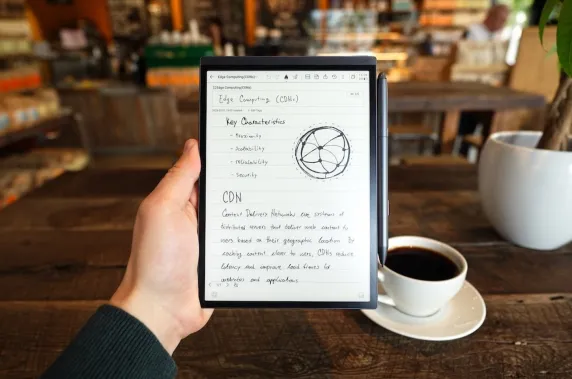 Edge Computing (CDNs)
Edge Computing (CDNs)
Key Characteristics
- Proximity
- Scalability
- reliability
- Security
CDN
Content Delivery Networks are systems of
distributed servers that deliver web content to
users based on their geographic location. By
caching content closer to users, CDNs reduce
latency and improve load times for
websites and applications.